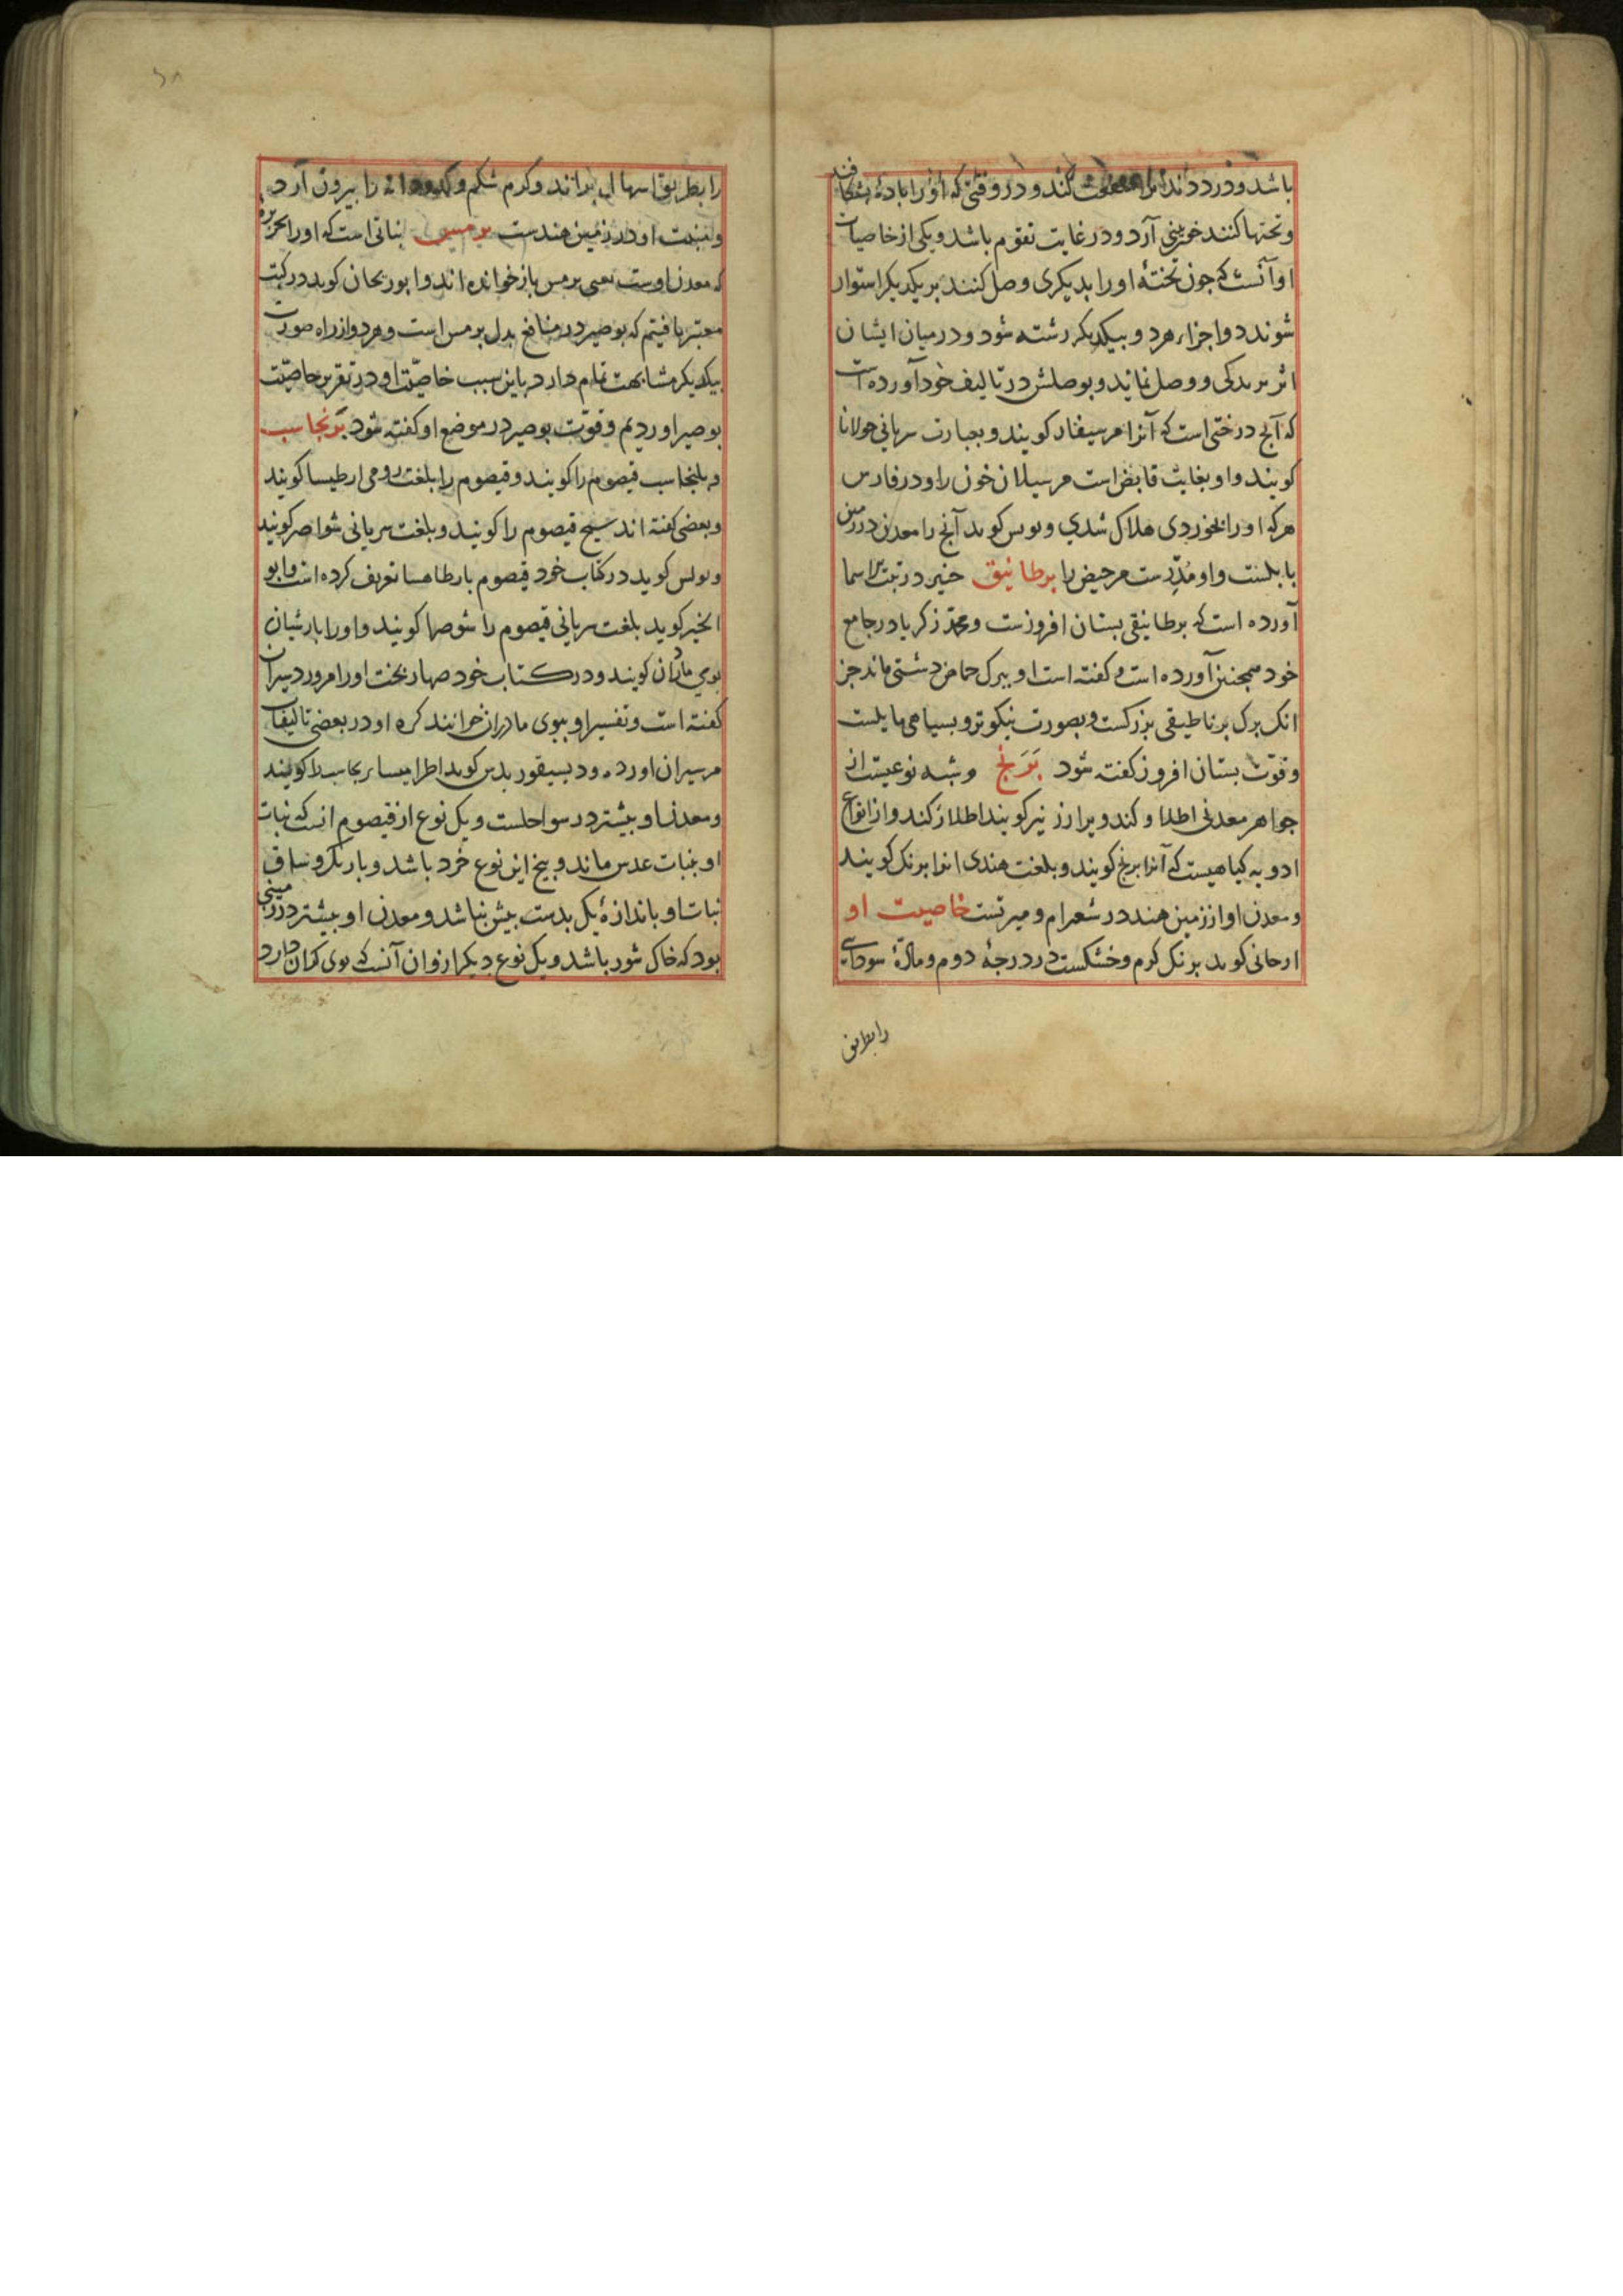 باشد و درد دندانرا منفعت کند و در وقتی که او را باده بشکافند
و تختها کنند خونینی آرد و در غایت تقوم باشد و یکی از خاصیات
او آنست که جون تختهٔ او را بدیکری وصل کنند بر یکدیکر استوار
شوند و اجزاء هر دو بیکدیکر رشته شود و در میان ایشان
اثر بریدکی و وصل نماند و بوصلش در تالیف خود آورده است
که آنج درختی است که آنرا مرسیفار کویند و بعبارت سریانی حولانا
کویند و او بغایت قابض است مر سیلان خون را و در فارس
هر که او را بخوردی هلاک شدی و بولس کوید آنج را معدن در زمین
بابلست و او مدرست مر حیض را برطانیق حنین در ثبت اسما
آورده است که برطانیقی بستان افروزست و محمد زکریا در جامع
خود همجنین آورده است و کفته است او ببرک حماض دشتی ماند جز
انک برک برناطیقی بزرکست و بصورت نیکوتر و بسیاهی مایلست
و قوت بستان افروز کفته شود برنج و شبه نوعیست از
جواهر معدنی اطلاق کند و برارز نیز کویند اطلاق کند و از انواع
ادویه کیاهیست که آنرا برنج کویند و بلغت هندی انرا برنک کویند
و معدن او از زمین هند در شعرام و میرتست خاصیت او
ارجانی کوید برنک کرم و خشکست در درجهٔ دوم و مادّهٔ سودای
رابطریق
را بطریق اسهال براند و کرم شکم و کدودانه را بیرون آرد
و منبت او در زمین هندست برمس نباتی است که او را بحر بره
که معدن اوست یعنی برمس باز خوانده اند و ابوریحان کوید در کتب
معتبر یافتیم که بوصیر در منافع بدل برمس است و هر دو از راه صورت
بیکدیکر مشابهت تمام دارد باین سبب خاصیت او در تقریر خاصیت
بوصیر اوردیم و قوت بوصیر در موضع او کفته شود برنجاسب
و بلنجاسب قیصوم را کویند و قیصوم را بلغت رومی ارطیسا کویند
و بعضی کفته اند سیح قیصوم را کویند و بلغت سریانی شواصر کویند
و بولس کوید در کتاب خود قیصوم بارطاهسا تعریف کرده است و ابو
الخیر کوید بلغت سریانی قیصوم را شوصها کویند و او را بارشیان
بوی مادران کویند و در کتاب خود صهاربخت او را امرور دسیران
کفته است و تفسیر او ببوی مادران خوانند کره او در بعضی تالیفات
مرسیران اورده و دیسیقوریدس کوید اطرامیسا برنجاسب را کویند
و معدن او بیشتر در سواحلست و یک نوع از قیصوم انست که نبات
او بنبات عدس ماند و بیخ این نوع خرد باشد و باریک و ساق
نبات او باندازهٔ یک بدست بیش نباشد و معدن او بیشتر در زمینی
بود که خاک شور باشد و یک نوع دیکر از وان آنست که بوی کران دارد